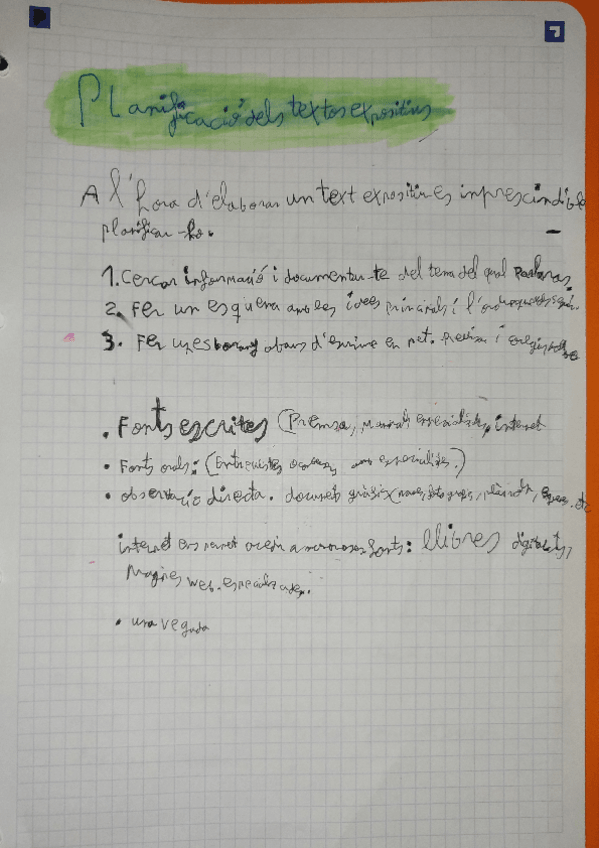 Planificació dels textos expositius
A l'hora d'elaborar un text expositiu es imprescindible
planificar-ho.
1. Cercar informació i documentar-te del tema del qual parlaras.
2. Fer un esquema amb les idees principals i l'ordre
3. Fer un esborrany abans d'escriure en net. Revisar i
• Fonts escrites (Premsa, manuals especialitzats, internet
• Fonts orals: (Entrevistes a especialistes.)
• observació directa. document gràfics (mapes, fotografies, etc
internet ens permet accedir a nombroses fonts: llibres digitalitzats,
Pàgines web especialitzades.
• una vegada